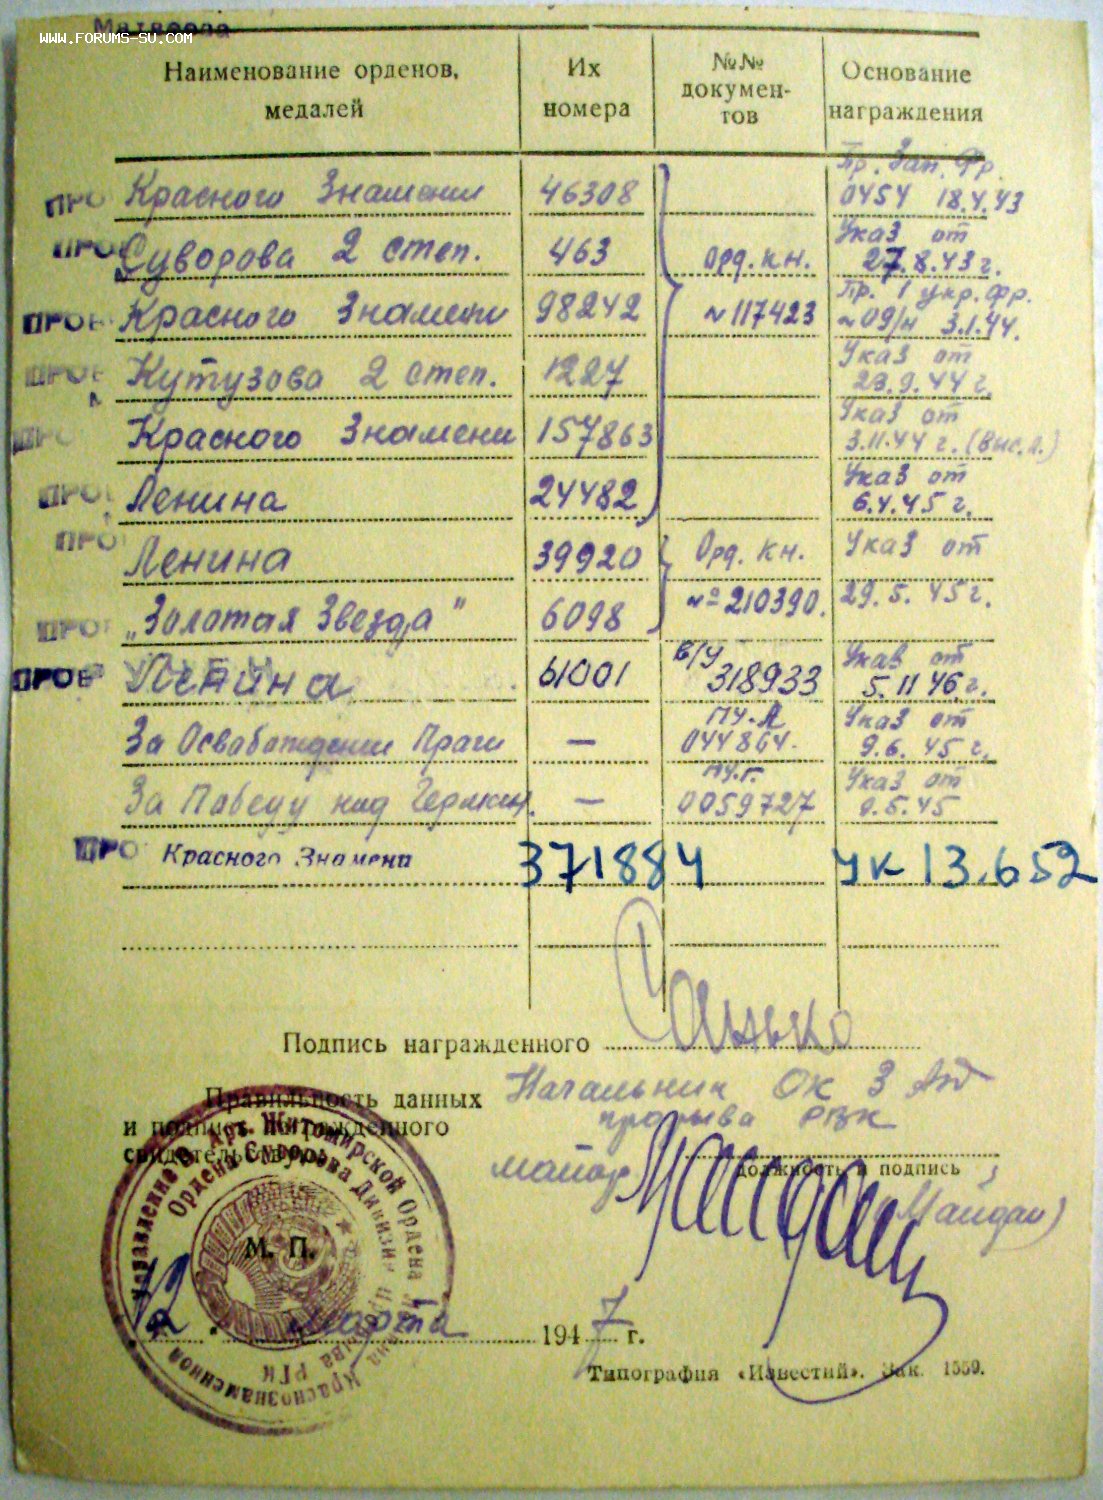 Матвеева
WWW.FORUMS-SU.COM
Наименование орденов, медалей
Их номера
№№ документов
Основание награждения
ПРО Красного Знамени 46308 Пр. Зап. Фр. 0454 18.4.43
ПРО Суворова 2 степ. 463 Орд. кн. Указ от 27.8.43 г.
ПРОВ Красного Знамени 98242 №117423 Пр. 1 укр. фр. №09/н 3.1.44.
ПРОВ Кутузова 2 степ. 1227 Указ от 23.9.44 г.
ПРО Красного Знамени 157863 Указ от 3.11.44 г. (выс.л.)
ПРО Ленина 24482 Указ от 6.4.45 г.
ПРО Ленина 39920 Орд. кн. Указ от
ПРО „Золотая Звезда" 6098 №210390. 29.5.45 г.
ПРОВ Ленина 61001 в/у 318933 Указ от 5.11 46 г.
За Освабаждении Праги — ПУ.А 044864. Указ от 9.6.45 г.
За Победу над Герман. — ПУ.Г. 0059727 Указ от 9.5.45
ПРО Красного Знамени 371884 УК 13.652
Подпись награжденного Санько
Правильность данных и подпись награжденного свидетельствую:
Начальник ОК 3 Ад
прорыва РВК
майор
должность и подпись
(Майдан)
Управление 3 Арт. Житомирской Ордена Ленина Краснознаменной
Ордена Суворова Дивизии прорыва РГК
М. П.
12 марта 1947 г.
Типография «Известий». Зак. 1559.